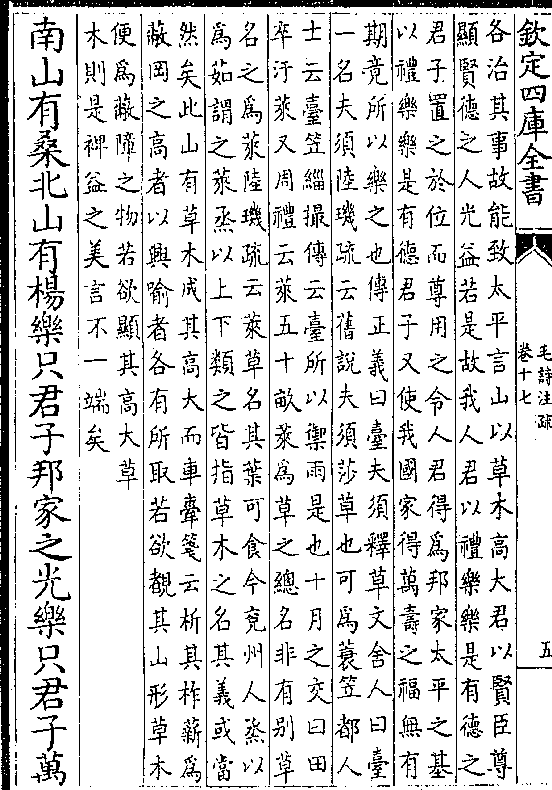 欽定四庫全書
毛詩注疏
卷十七
五
各治其事故能致太平言山以草木高大君以賢臣尊
顯賢德之人光益若是故我人君以禮樂樂是有德之
君子置之於位而尊用之令人君得為邦家太平之基
以禮樂樂是有德君子又使我國家得萬壽之福無有
期竟所以樂之也傳正義曰臺夫須釋草文舍人曰臺
一名夫須陸璣疏云舊說夫須莎草也可為蓑笠都人
士云臺笠緇撮傳云臺所以禦雨是也十月之交曰田
卒汙萊又周禮云萊五十畝萊為草之總名非有别草
名之為萊陸璣疏云萊草名其葉可食今兖州人烝以
為茹謂之萊烝以上下類之皆指草木之名其義或當
然矣此山有草木成其高大而車舝箋云析其柞薪為
蔽岡之高者以興喻者各有所取若欲覩其山形草木
便為蔽障之物若欲顯其高大草
木則是裨益之美言不一端矣
南山有桑北山有楊樂只君子邦家之光樂只君子萬